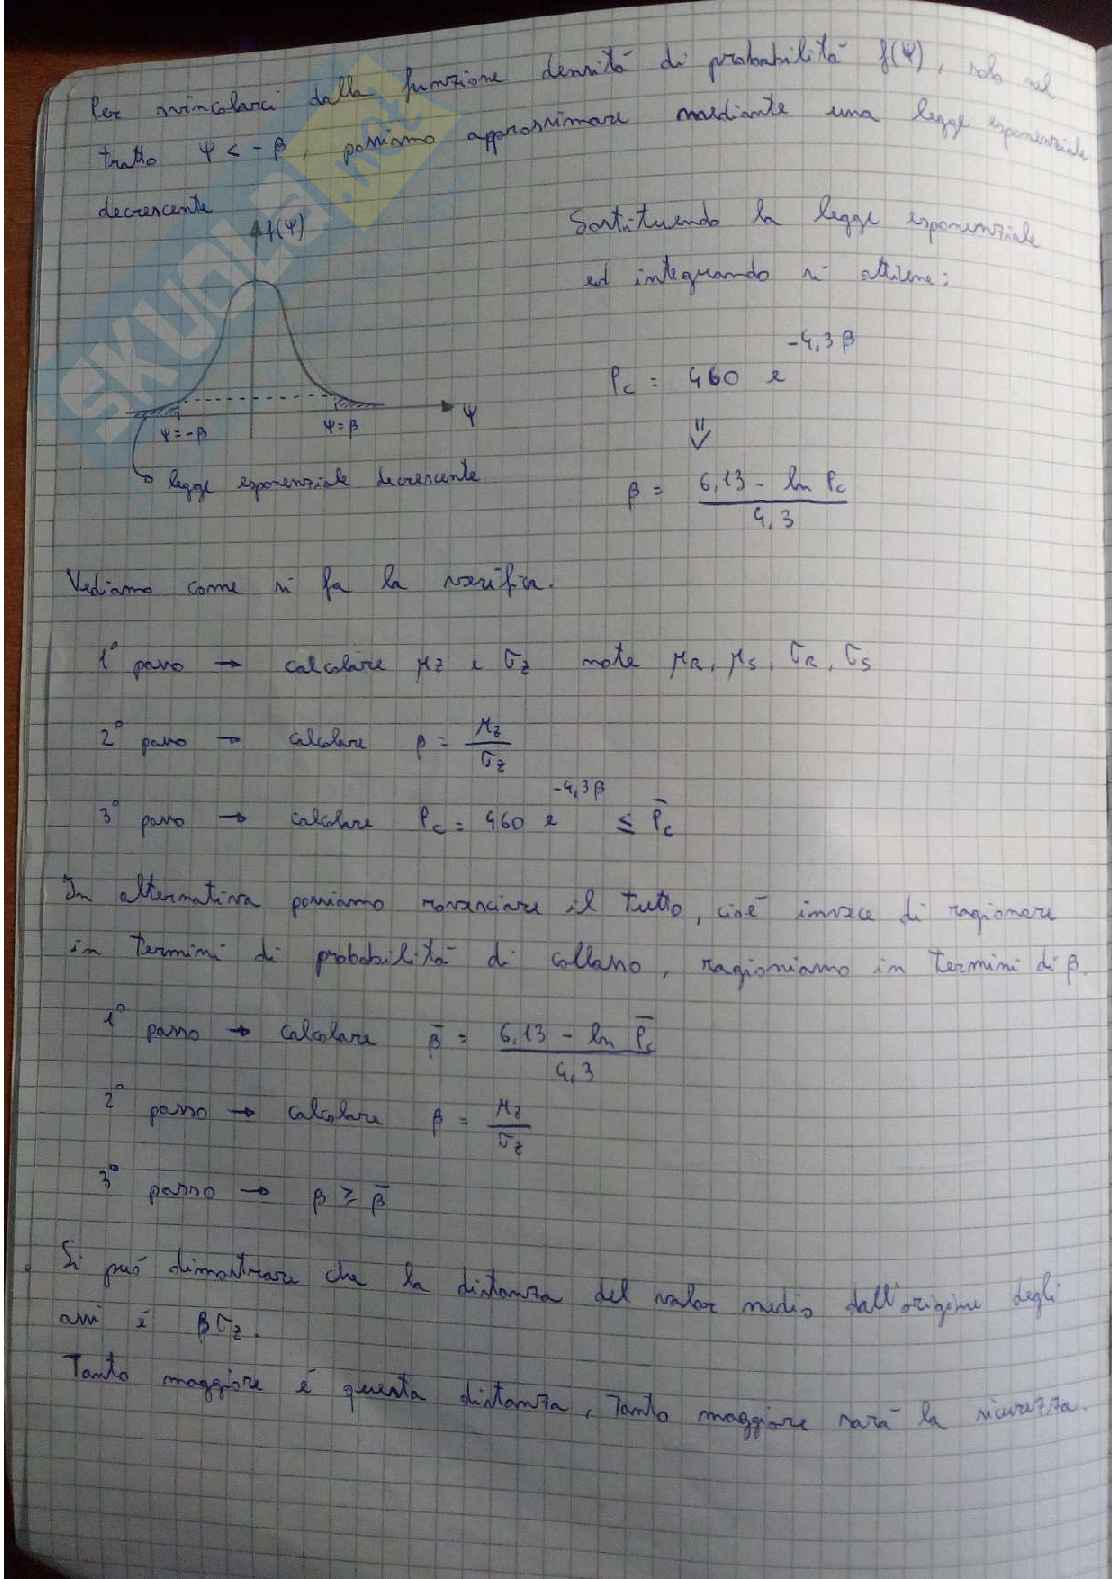 Per svincolarci dalla funzione densità di probabilità f(Ψ), solo nel
tratto Ψ < - β, possiamo approssimare mediante una legge esponenziale
decrescente
f(Ψ)
Ψ
Ψ=-β
Ψ=β
legge esponenziale decrescente
Sostituendo la legge esponenziale
ed integrando si ottiene:
Pc = 460 e^{-4,3β}
⇓
β = \frac{6,13 - ln Pc}{4,3}
Vediamo come si fa la verifica.
1° passo → calcolare μz e σz note μR, μs, σR, σs
2° passo → calcolare β = \frac{μz}{σz}
3° passo → calcolare Pc = 460 e^{-4,3β} ≤ P̄c
In alternativa possiamo rovesciare il tutto, cioè invece di ragionare
in termini di probabilità di collasso, ragioniamo in termini di β.
1° passo → calcolare β̄ = \frac{6,13 - ln P̄c}{4,3}
2° passo → calcolare β = \frac{μz}{σz}
3° passo → β ≥ β̄
Si può dimostrare che la distanza del valor medio dall'origine degli
assi è βσz.
Tanto maggiore è questa distanza, tanto maggiore sarà la sicurezza.
SKUOLA.net